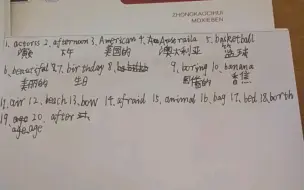 ZHONGKAOCIHUI
MOXIEBEN
1. actoress 2. afternoon 3. American 4. Australia 5. basketball
演员 下午 美国的 澳大利亚 篮球
6. beautiful 7. birthday 8. 9. boring 10. banana
美丽的 生日 无聊的 香蕉
11. air 12. beach 13. bow 14. afraid 15. animal 16. bag 17. bed 18. borth
19. age 20. after
age age